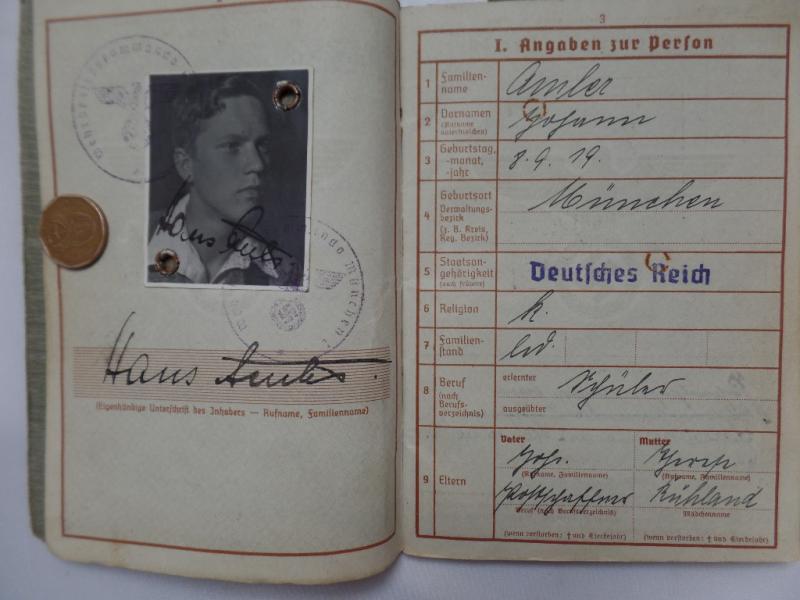 Wehrbezirkskommando
Hans
Wehrbezirkskommando München I
Hans
(Eigenhändige Unterschrift des Inhabers — Rufname, Familienname)
3
I. Angaben zur Person
1 Familien-
name
Amler
2 Vornamen
(Rufname
unterstreichen)
Johann
3 Geburtstag,
-monat,
-jahr
8.9.19.
4 Geburtsort
Verwaltungs-
bezirk
(z. B. Kreis,
Reg. Bezirk)
München
5 Staatsan-
gehörigkeit
(auch frühere)
Deutsches Reich
6 Religion
k.
7 Familien-
stand
led.
8 Beruf
(nach
Berufs-
verzeichnis)
erlernter
Schüler
ausgeübter
9 Eltern
Vater
Joh.
(Rufname, Familienname)
Postschaffner
Beruf (nach Berufsverzeichnis)
(wenn verstorben: † und Sterbejahr)
Mutter
(Rufname, Familienname)
Rühland
Mädchenname
(wenn verstorben: † und Sterbejahr)